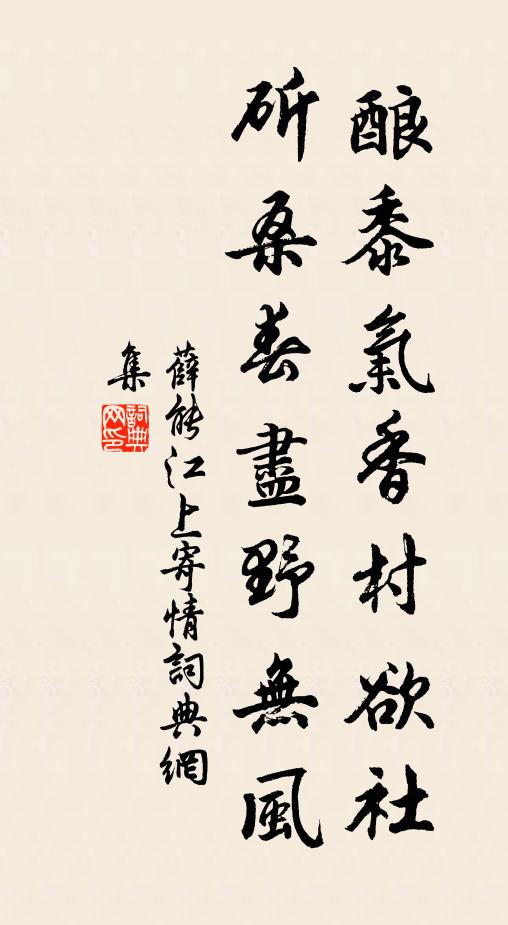 酿黍氣香村欲社
斫桑春盡野無風
薛能江上寄情詞典網
集
詞典
网印